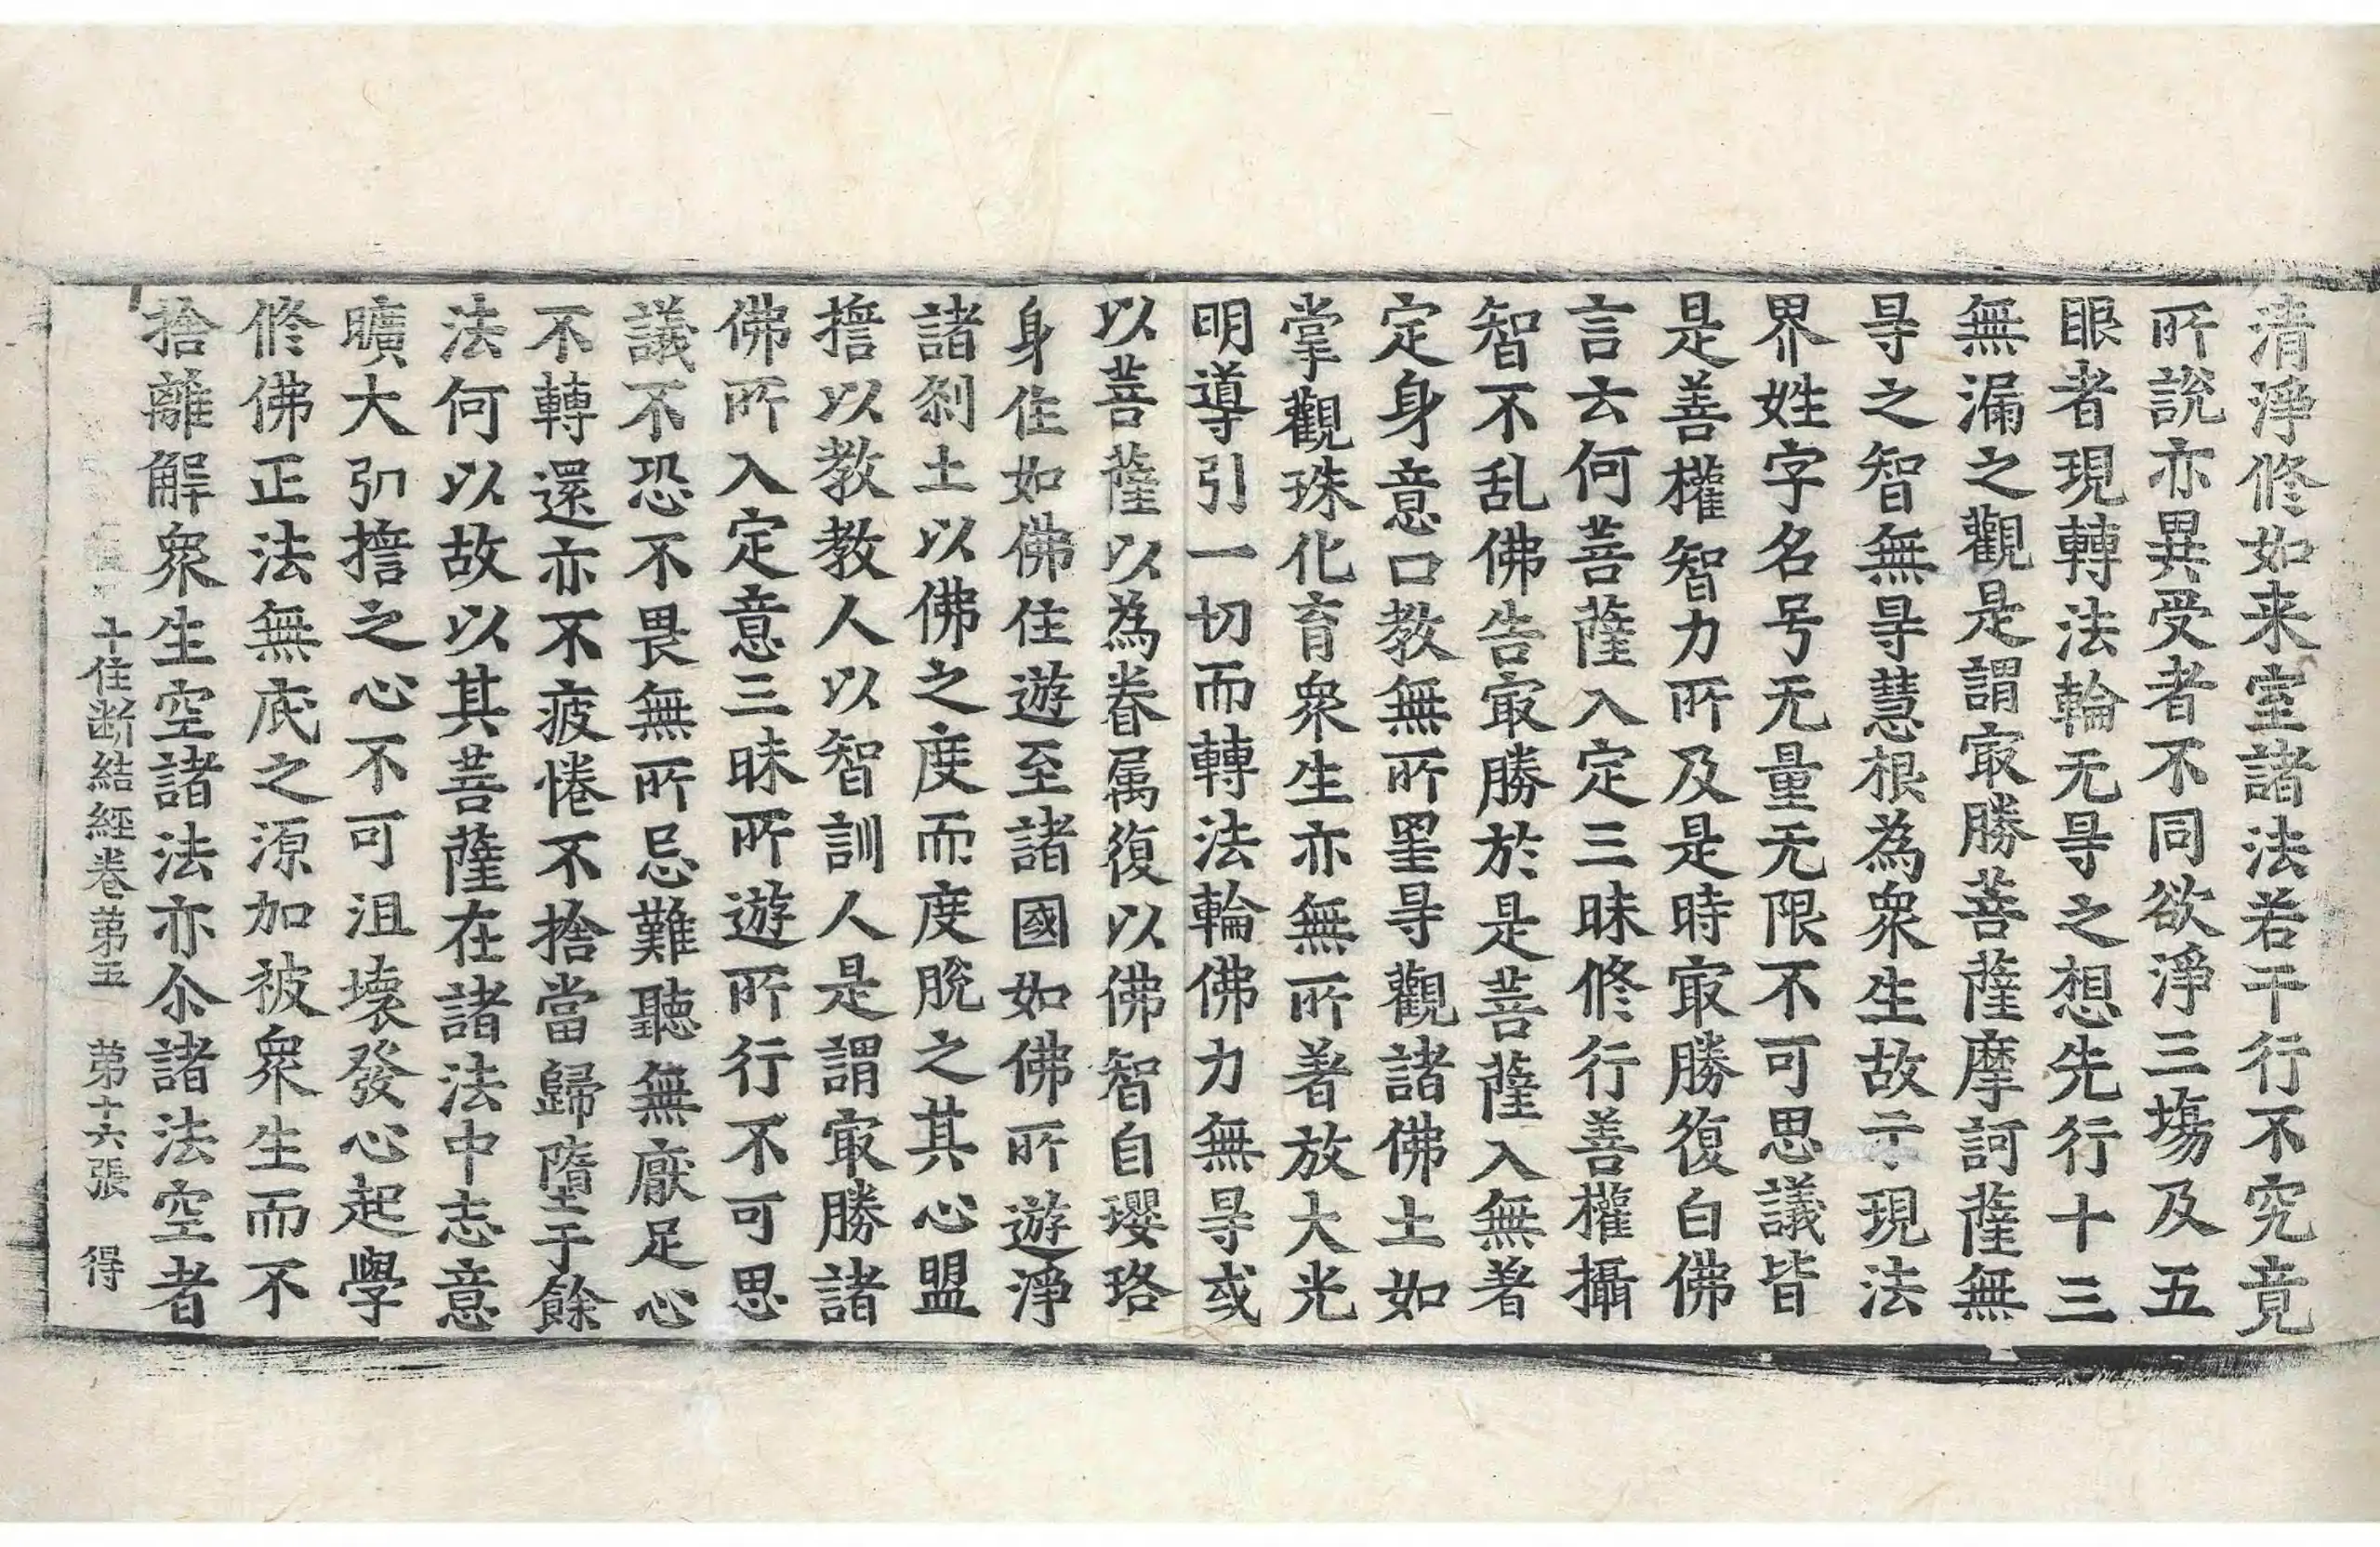 清淨修如来室諸法若干行不究竟
所說亦異受者不同欲淨三塲及五
眼者現轉法輪无㝵之想先行十三
無漏之觀是謂㝡勝菩薩摩訶薩無
㝵之智無㝵慧根為衆生故示現法
界姓字名号无量无限不可思議皆
是善權智力所及是時㝡勝復白佛
言云何菩薩入定三昧修行善權攝
智不乱佛告㝡勝於是菩薩入無著
定身意口教無所罣㝵觀諸佛土如
掌觀珠化育衆生亦無所著放大光
明導引一切而轉法輪佛力無㝵或
以菩薩以為眷属復以佛智自瓔珞
身住如佛住遊至諸國如佛所遊淨
諸刹土以佛之度而度脫之其心盟
誓以教教人以智訓人是謂㝡勝諸
佛所入定意三昧所遊所行不可思
議不恐不畏無所忌難聽無厭足心
不轉還亦不疲惓不捨當歸墮于餘
法何以故以其菩薩在諸法中志意
曠大弘誓之心不可沮壞發心起學
修佛正法無底之源加被衆生而不
捨離解衆生空諸法亦尒諸法空者
十住斷結經卷第五 第十六張 得